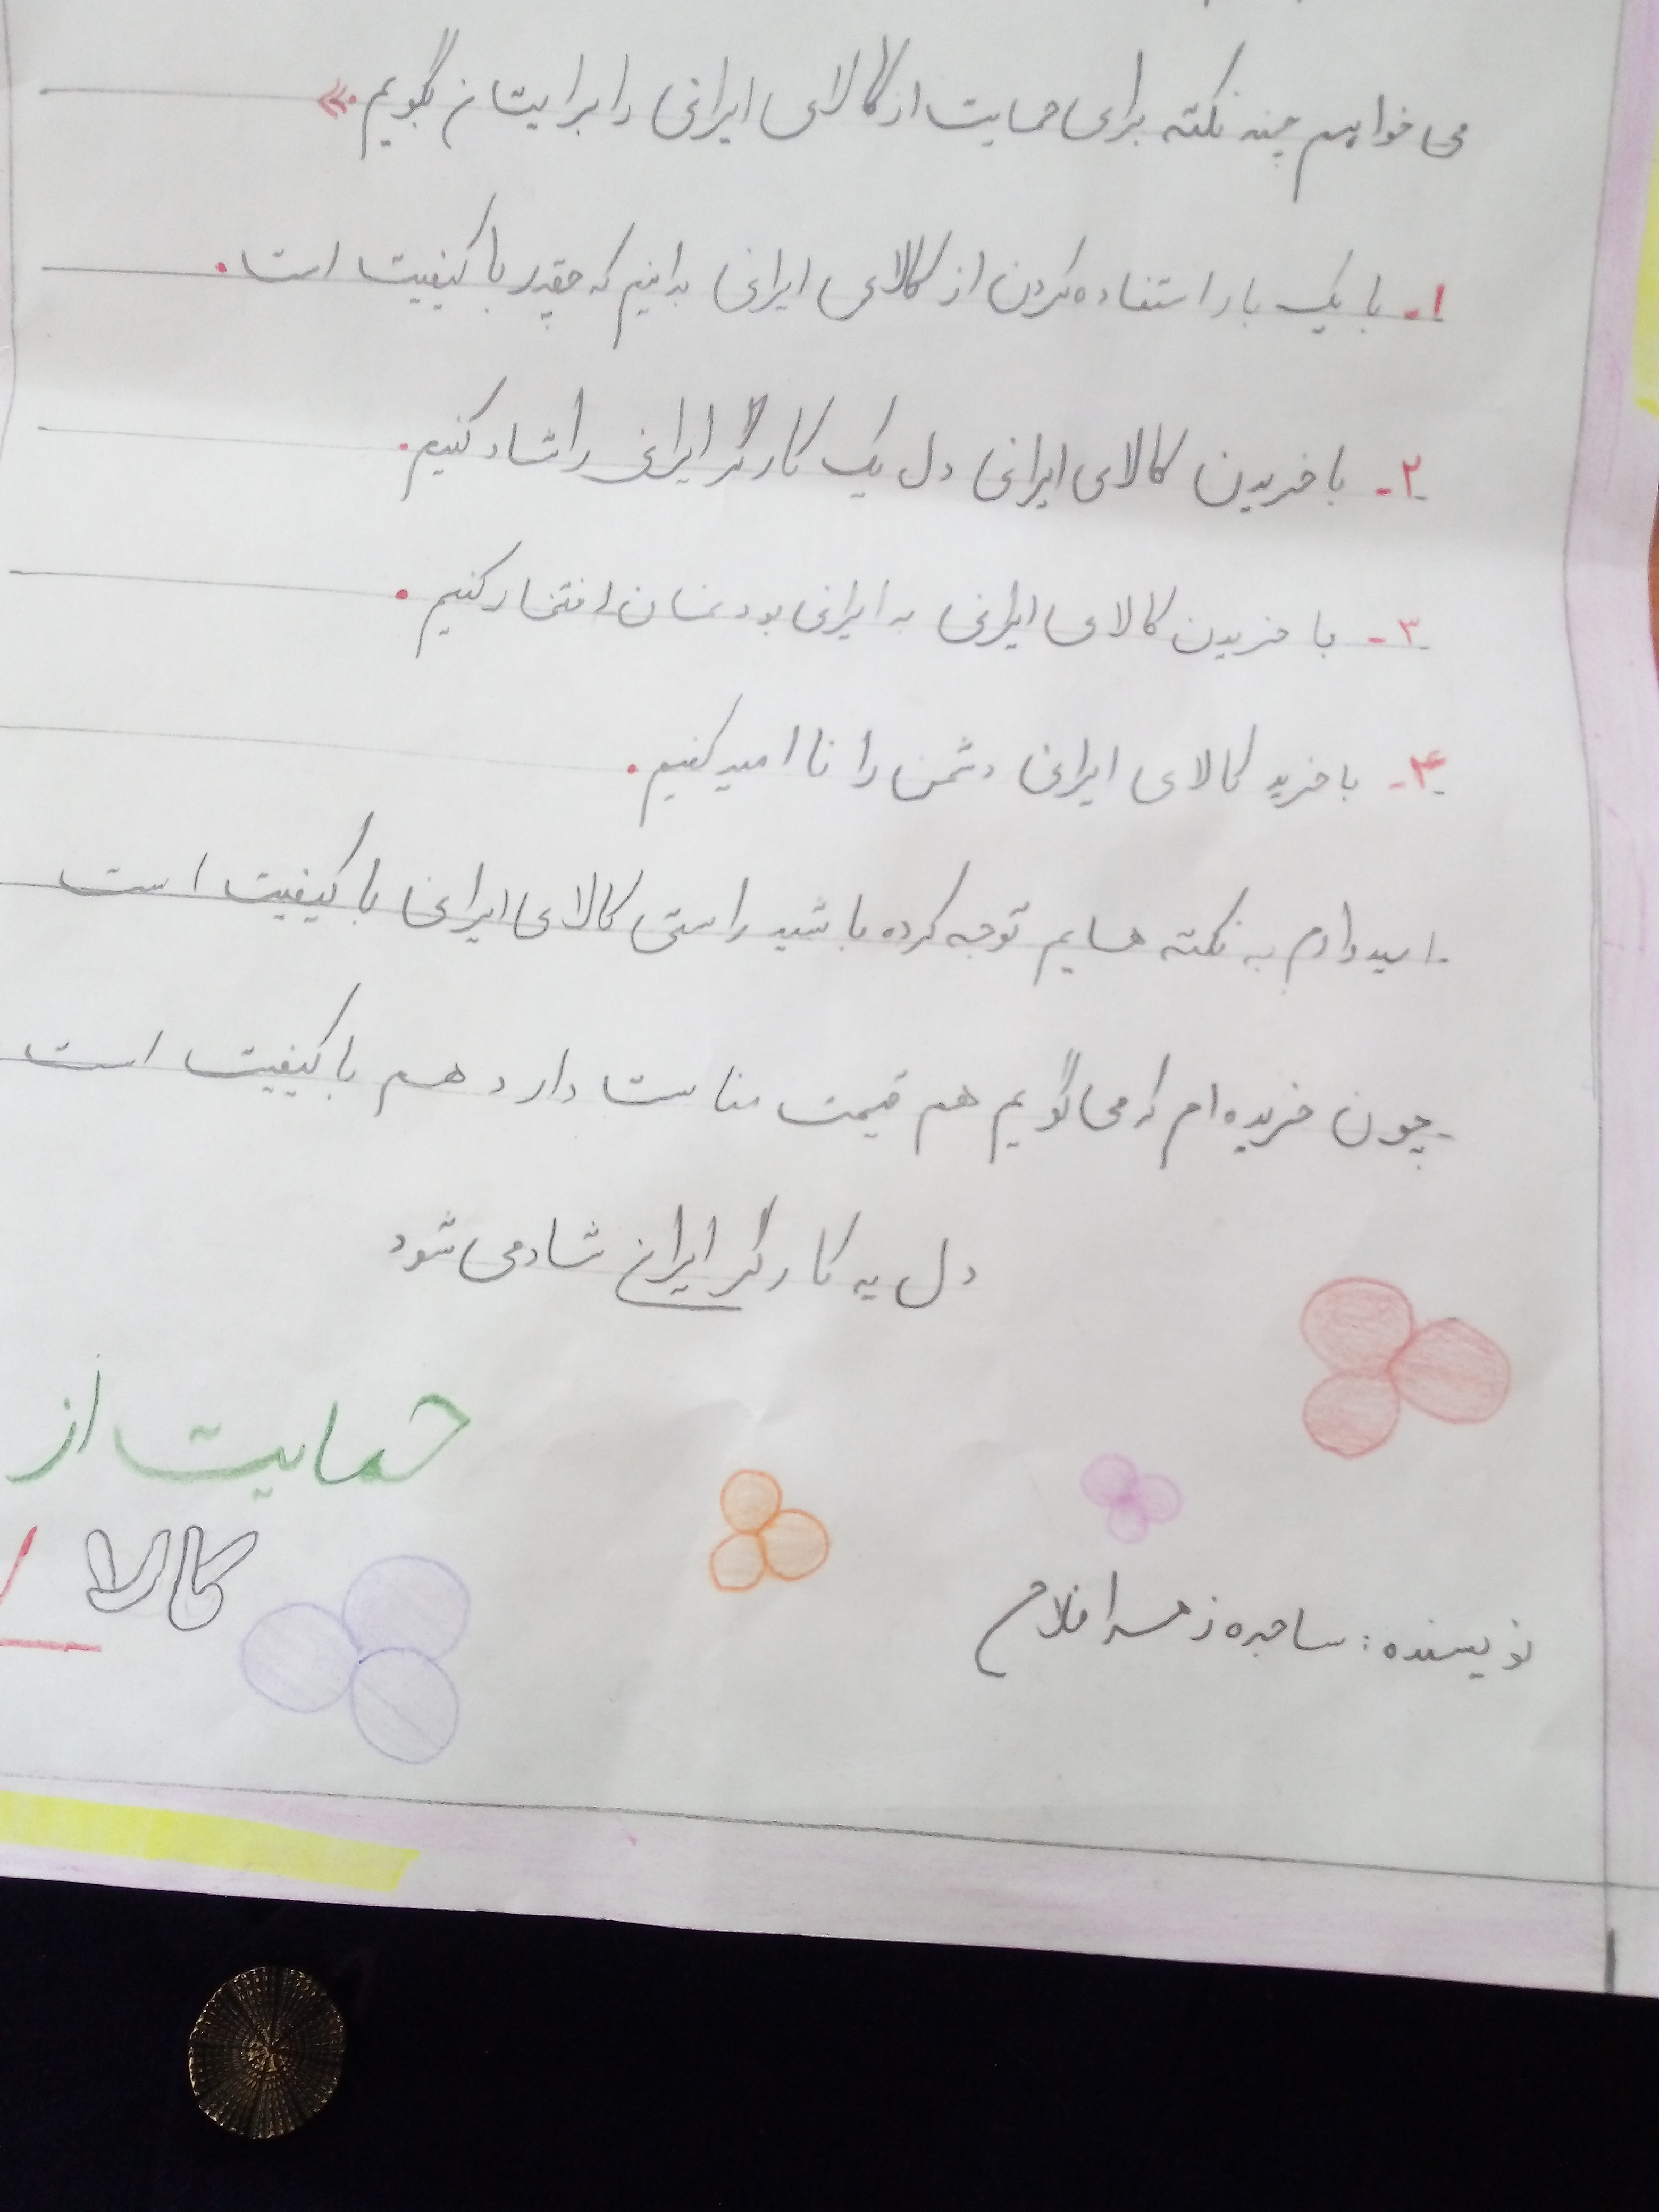 می خواهم چند نکته برای حمایت از کالای ایرانی را برایتان بگویم.»
۱- با یک بار استفاده کردن از کالای ایرانی بدانیم که چقدر با کیفیت است.
۲- با خریدن کالای ایرانی دل یک کارگر ایرانی را شاد کنیم.
۳- با خریدن کالای ایرانی به ایرانی بودنمان افتخار کنیم.
۴- با خرید کالای ایرانی دشمن را نا امید کنیم.
امیدوارم به نکته هایم توجه کرده باشید راستی کالای ایرانی با کیفیت است
چون خریده ام که می گویم هم قیمت مناسب دارد هم با کیفیت است
دل یه کارگر ایرانی شاد می شود
حمایت از
کالا
نویسنده: ساجده زهرا فلاح